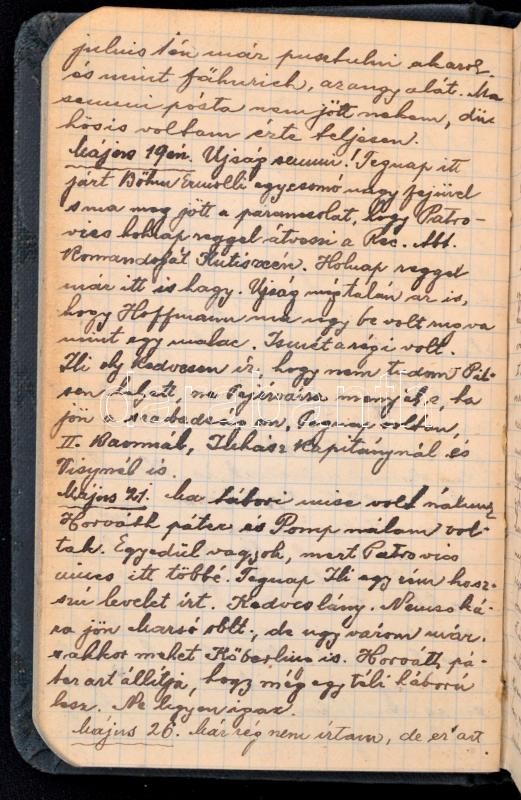 julius 1én már pusztulni akarok
és mint fähnrich, az angyalát. Ma
semmi pósta nem jött nekem, dü-
hösis voltam érte teljesen.
Május 19én. Ujság semmi! Tegnap itt
járt Böhm Ermolli egycsomó nagy fejűvel
s ma meg jött a parancsolat, hogy Patro-
vics holnap reggel átveszi a Rec. Abt.
Komandóját Kutiscén. Holnap reggel
már itt is hagy. Ujság még talán az is,
hogy Hoffmann ma ugy be volt rugva
mint egy malac. Ismét a régi volt.
Ili oly kedvesen ír, hogy nem tudom Pil-
sen helyett, ne Fejérvárra menyek e, ha
jön a szabadságom. Tegnap voltam,
II. Baonnál, Juhász kapitánynál és
Visynél is.
Május 21. Ma tábori mise volt nálunk
Horváth páter és Pomp nálam vol-
tak. Egyedül vagyok, mert Patrovics
nincs itt többé. Tegnap Ili egy hosz-
szú levelet írt. Kedves lány. Nemsoká-
ra jön Marsó oblt., de ugy várom már.
akkor mehet Köberling is. Horváth pá-
ter azt állítja, hogy még egy téli háború
lesz. Ne légyen igaz.
Május 26. Már rég nem írtam, de ez azt
darabanth